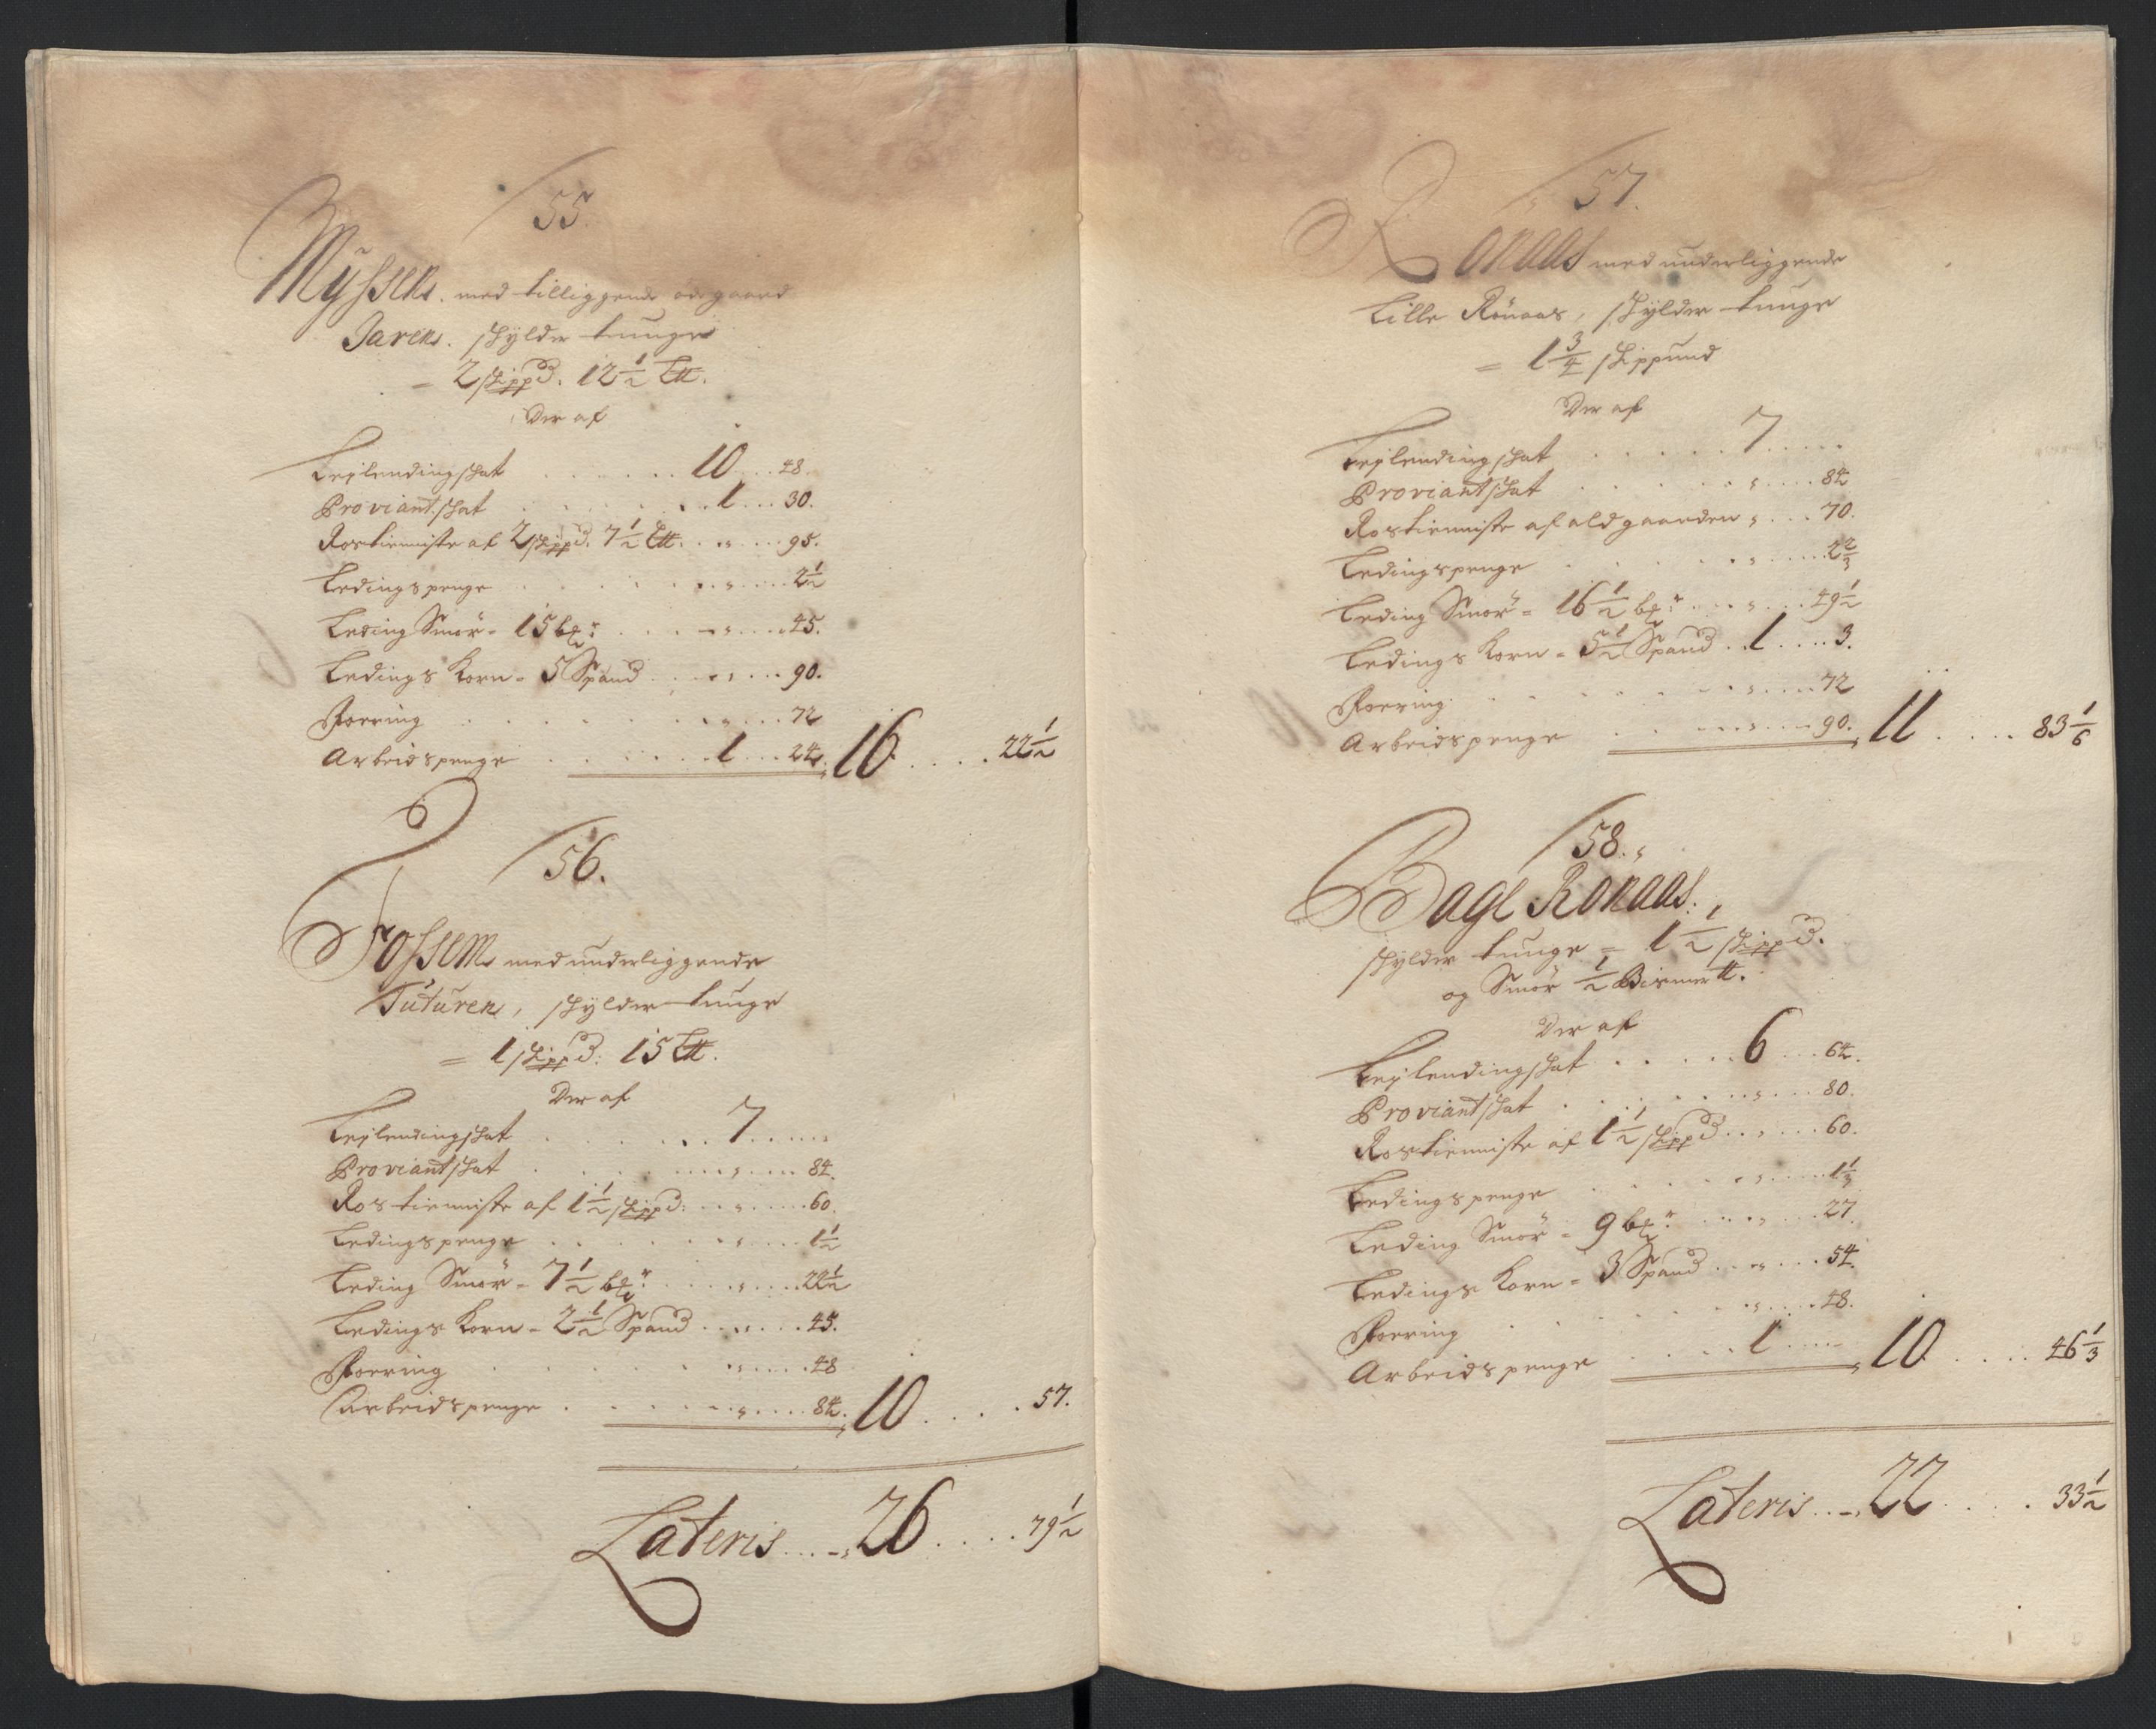 55.
Mÿssen. med tilliggende ödegaard
Jaren. skÿlder tunge
= 2 skippd. 12½ L℔.
Der af
Leylendingskat . . . . . . 10 . . . 48.
Proviantskat . . . . . . 1 . . . 30.
Rostienniste af 2 skippd. 7½ L℔. . . „ . . . 95.
Ledingspenge . . . . . . „ . . . 2½
Leding Smör = 15 bpr: . . . „ . . . 45.
Ledings Korn = 5 Spand . . . „ . . . 90.
Foering . . . . . . „ . . . 72
Arbeidspenge . . . . . . 1 . . . 24. 16. . . . . 22½
56.
Fossem med underliggende
Tuturen, skÿlder tunge
= 1 skippd: 15 L℔.
Der af
Leylendingskat . . . . . . 7 . . . .
Proviantskat . . . . . . „ . . . 84.
Rostienniste af 1½ skippd: . . „ . . . 60.
Ledingspenge . . . . . . „ . . . 1½
Leding Smör = 7½ bpr: . . . „ . . . 22½
Ledings Korn = 2½ Spand . . . „ . . . 45.
Foering . . . . . . „ . . . 48
Arbeidspenge . . . . . . „ . . . 84. 10 . . . . 57.
Lateris . . . 26 . . . . 79½
57.
Rönaas med underliggende
Lille Rönaas, skÿlder tunge
= 1¾ skippund
Der af
Leylendingskat . . . . . 7 . . . .
Proviantskat . . . . . „ . . . 84
Rostienniste af ald gaarden „ . . . 70.
Ledingspenge . . . . . „ . . . 2⅔
Leding Smör = 16½ bpr: . . . „ . . . 49½
Ledings Korn = 5½ Spand . . 1 . . . 3.
Foering . . . . . . „ . . . 72
Arbeidspenge . . . . . „ . . . 90. 11 . . . . 83⅙
58.
Bagl Rönaas.
skÿlder tunge = 1½ skippd.
og Smör ½ Bismer℔.
Der af
Leylendingskat . . . . . 6 . . . 64.
Proviantskat . . . . . „ . . . 80.
Rostienniste af 1½ skippd . . „ . . . 60.
Ledingspenge . . . . . „ . . . 1⅓
Leding Smör = 9 bpr: . . . „ . . . 27.
Ledings Korn = 3 Spand . . . „ . . . 54.
Foering . . . . . „ . . . 48.
Arbeidspenge . . . . . 1 . . . . 10 . . . . 46⅓
Lateris . . . 22 . . . . 33½